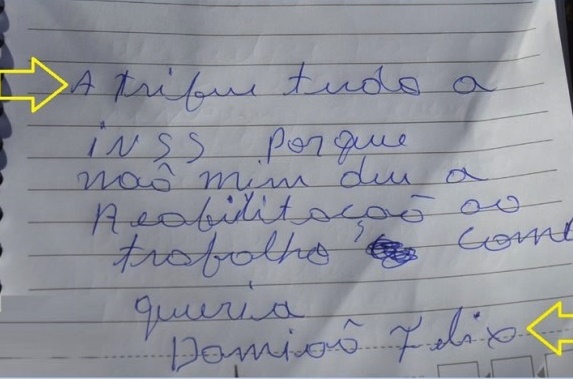 Atribui tudo a
iNSS porque
naõ mim deu a
Reabilitacaõ ao
trabalho, como
queria
Damiaõ Felix